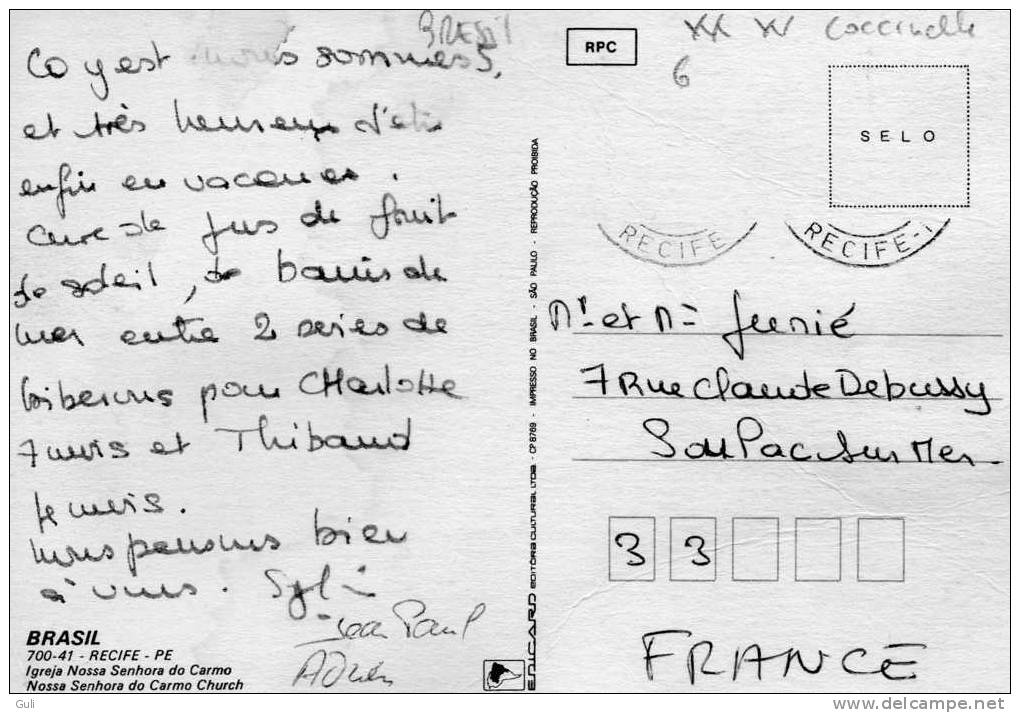 BRESIL
Ca y est nous sommes 5,
et très heureux d'etre
enfin en vacances.
Cure de jus de fruit
de soleil, de bains de
mer entre 2 series de
biberons pour CHarlotte
7 mois et Thibaud
7 mois.
nous pensons bien
à vous. Sylvie
Jean Paul
BRASIL
700-41 - RECIFE - PE
Igreja Nossa Senhora do Carmo
Nossa Senhora do Carmo Church
EDICARD EDITÔRA CULTURAL LTDA - CP 8769 - IMPRESSO NO BRASIL - SÃO PAULO - REPRODUÇÃO PROIBIDA
XX XV Coccinelle
6
RPC
SELO
RECIFE
RECIFE-1
Mr et Me Junié
7 Rue Claude Debussy
Sou Pac Sur Mer
3 3
FRANCE
Guli
delcampe.net